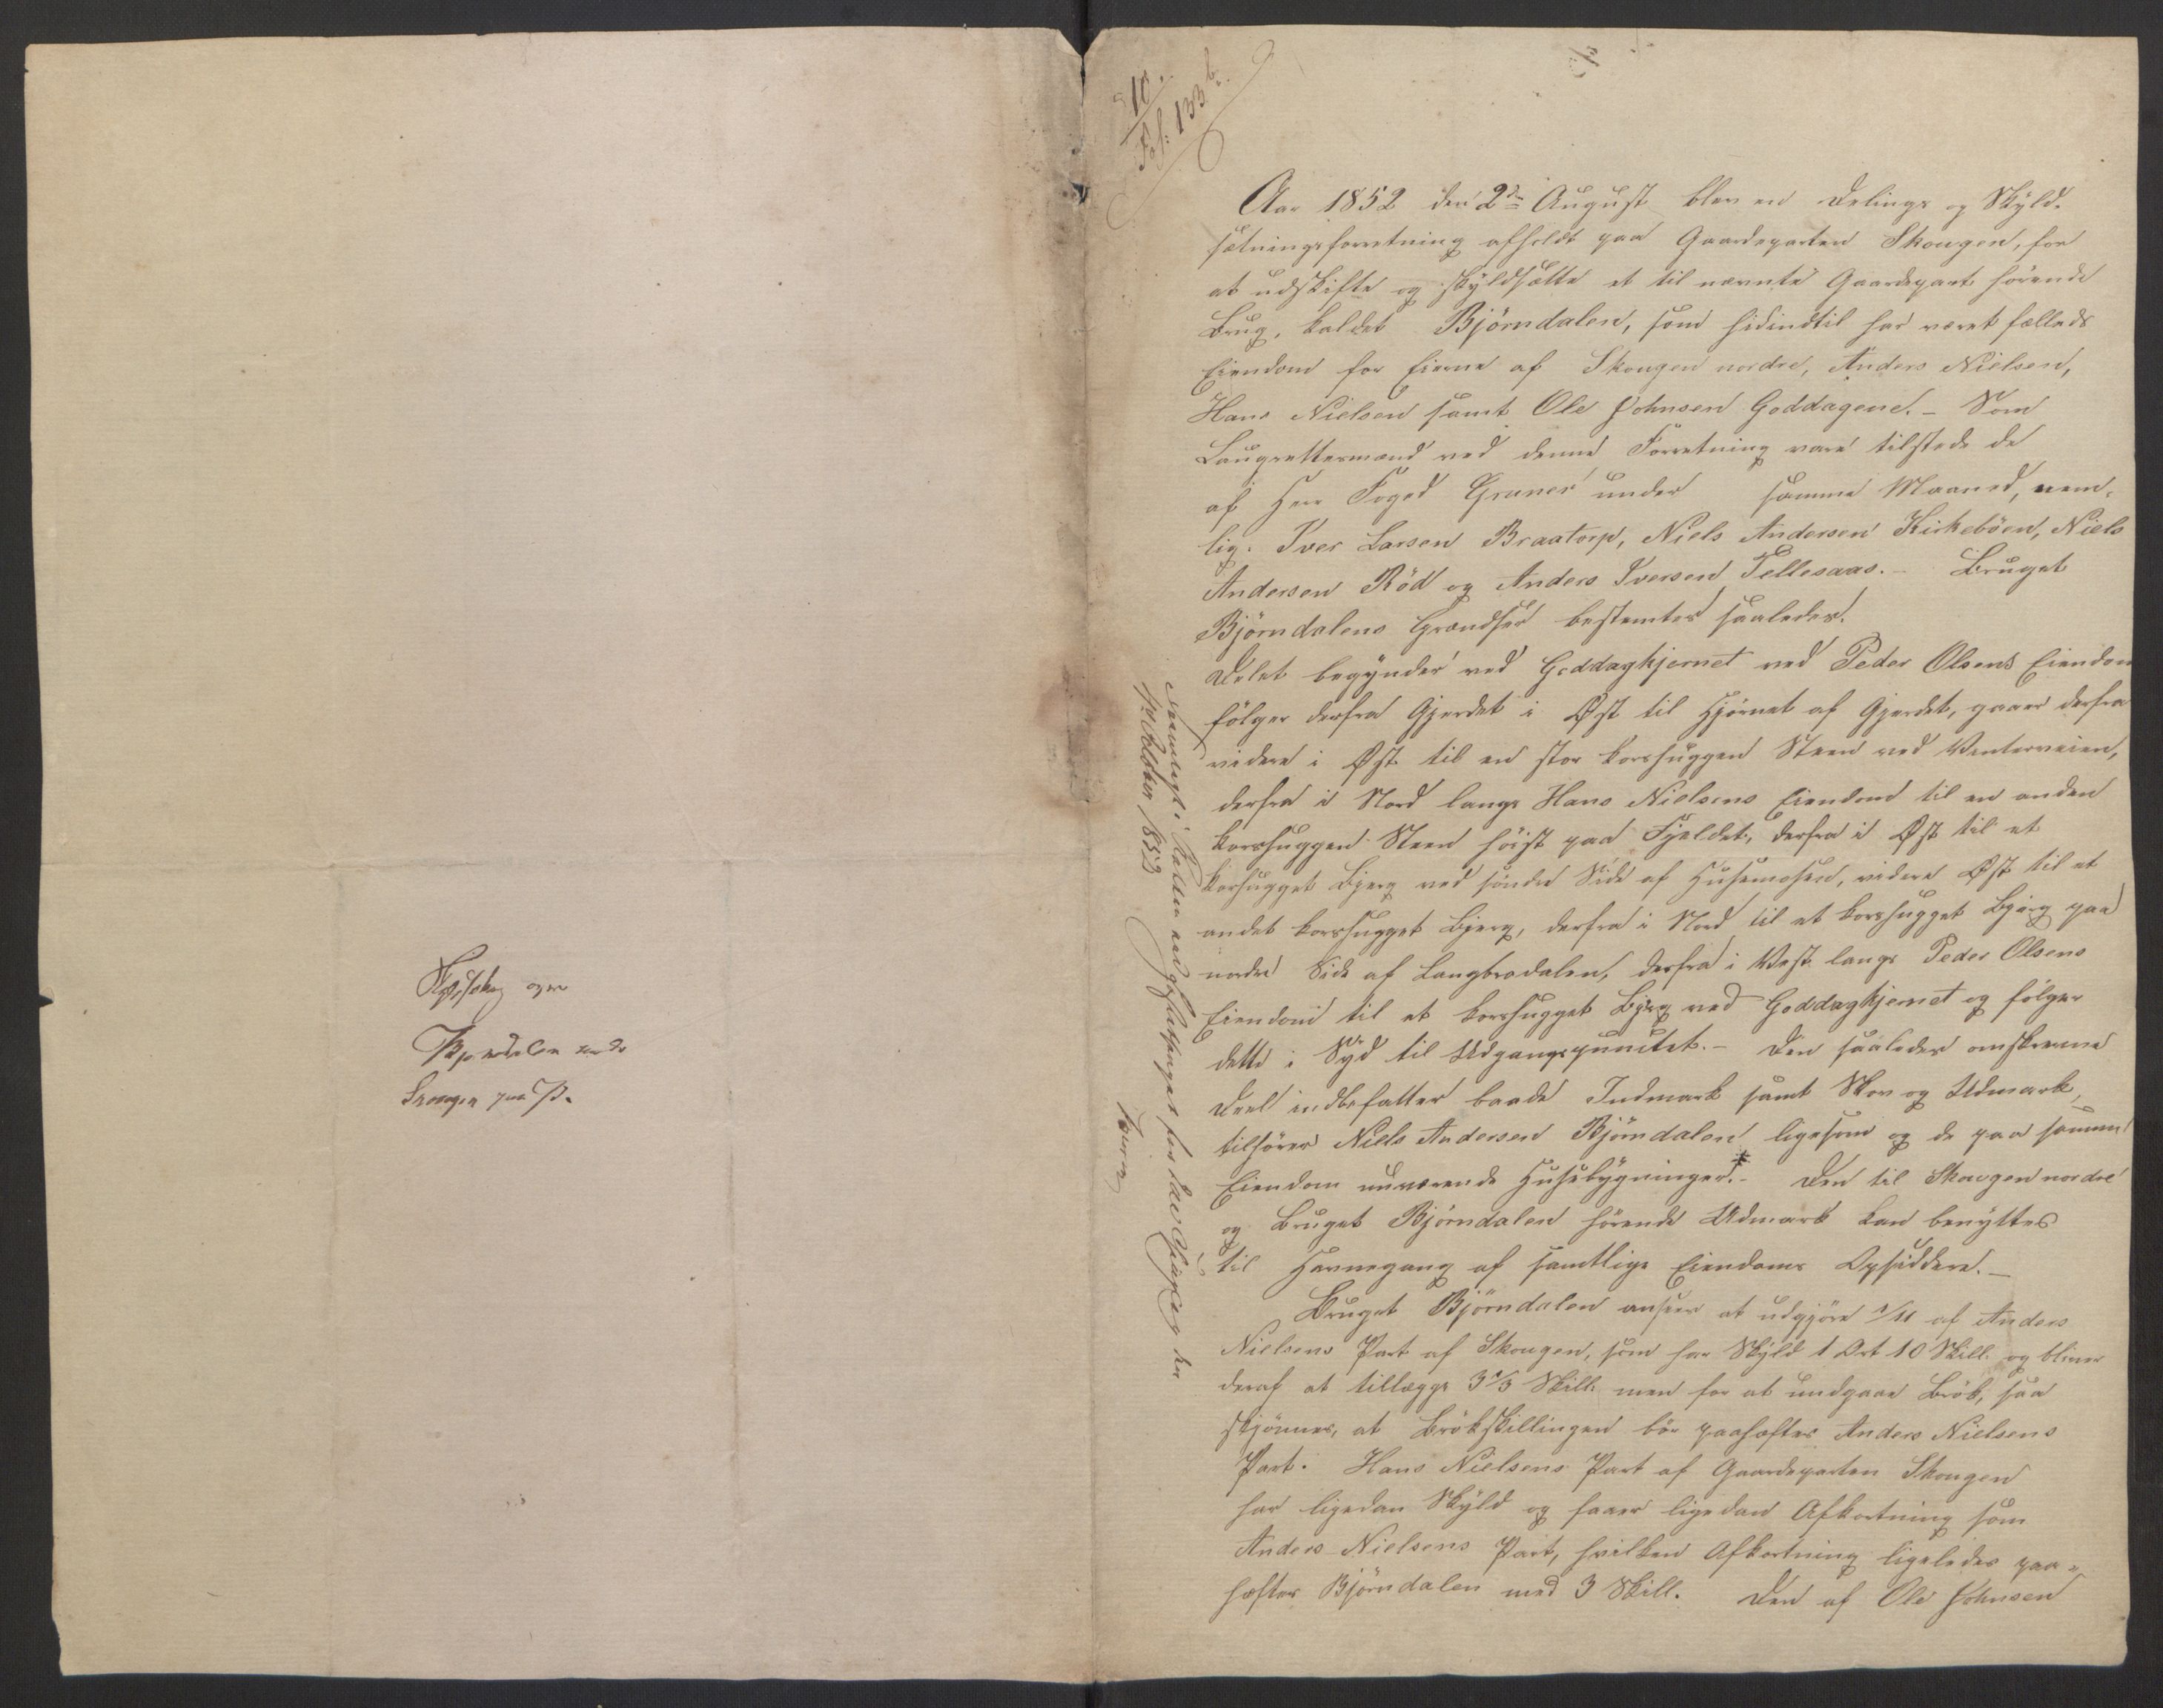 Skyldsætning over
Bjørndalen under
Skougen
10.
Fol: 133 b.
Aar 1852 den 2den August blev en Delings og Skyld-
sætningsforretning afholdt paa Gaardeparten Skougen, for
at udskifte og skyldsætte et til nævnte Gaardepart hørende
Brug, kaldet Björndalen, som hidindtil har været fælleds
Eiendom for Eierne af Skougen nordre, Anders Nielsen,
Hans Nielsen samt Ole Johnsen Goddagene. - Som
Laugrettesmænd ved denne Forretning vare tilstede de
af Herr Foged Gruner under samme Maaned, nem-
lig: Iver Larsen Braatorp, Niels Andersen Kirkebøen, Niels
Andersen Röd og Anders Iversen Tellesaas. - Bruget
Björndalens Grændser bestemtes saaledes:
Delet begynder ved Goddagkjernet ved Peder Olsens Eiendom
følger derfra Gjerdet i Øst til Hjørnet af Gjerdet, gaaer derfra
videre i Øst til en stor korshuggen Steen ved Vinterveien,
derfra i Nord langs Hans Nielsens Eiendom til en anden
korshuggen Steen høist paa Fjeldet, derfra i Øst til et
korshugget Bjerg ved søndre Side af Husemosen, videre Øst til et
andet korshugget Bjerg, derfra i Nord til et korshugget Bjerg paa
nordre Side af Langbrodalen, derfra i Vest langs Peder Olsens
Eiendom til et korshugget Bjerg ved Goddagkjernet og følger
dette i Syd til Udgangspunctet. - Den saaledes omskrevne
Deel indbefatter baade Indmark samt Skov og Udmark,
tilhører Niels Andersen Björndalen ligesom og de paa samme
Eiendom nuværende Husebygninger.* - Den til Skougen nordre
og Bruget Björndalen hørende Udmark kan benyttes
til Havnegang af samtlige Eiendoms Opsiddere. -
Bruget Björndalen ansees at udgjøre 1/11 af Anders
Nielsens Part af Skougen, som har Skyld 1 Ort 10 Skill. og bliver
deraf at tillægge 3 1/3 Skill. men for at undgaae Brøk, saa
skjønnes, at Brøkskillingen bør paahæftes Anders Nielsens
Part. Hans Nielsens Part af Gaardeparten Skougen
har ligedan Skyld og faaer ligedan Afkortning som
Anders Nielsens Part, hvilken Afkortning ligeledes paa-
hæftes Björndalen med 3 Skill. Den af Ole Johnsen
Fremlagt i Retten for
1ste October 1853